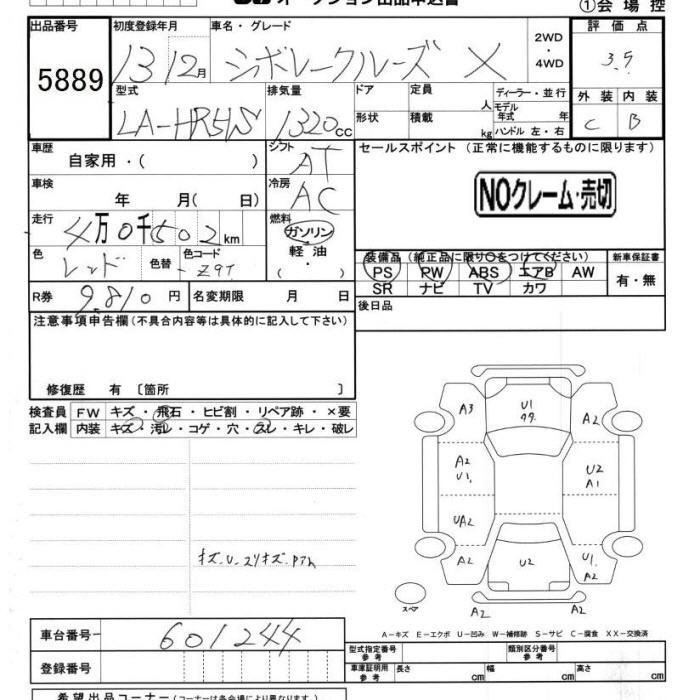 オークション出品申込書
①会場控
出品番号
5889
初度登録年月
13 12月
車名・グレード
シボレークルーズ X
2WD
・
4WD
評価点
3.5
型式
LA-HR51S
排気量
1320cc
ドア
形状
定員
人
積載
kg
ディーラー・並行
モデル
年式 年
ハンドル 左・右
外装 内装
C B
車歴
自家用・( )
シフト
AT
セールスポイント (正常に機能するものに限ります)
NOクレーム・売切
車検
年 月( 日)
冷房
AC
走行
4万0千502km
燃料
ガソリン
軽油
( ・ )
色
レッド
色替
色コード
Z9T
装備品 (純正品に限り○をつけてください)
PS PW ABS エアB AW
SR ナビ TV カワ
新車保証書
有・無
R券
9.810円
名変期限 月 日
後日品
注意事項申告欄(不具合内容等は具体的に記入して下さい)
修復歴 有 〔箇所 〕
検査員
記入欄
FW キズ・飛石・ヒビ割・リペア跡・×要
内装 キズ・汚レ・コゲ・穴・スレ・キレ・破レ
A3
U1
A2
A2
U1
U2
A1
UA2
A2
U2
U1
A2
スペア
A2
A2
キズ.U.スリキズ.
A-キズ E-エクボ U-凹み W-補修跡 S-サビ C-腐食 XX-交換済
車台番号
601244
登録番号
型式指定番号
参考
類別区分番号
参考
車庫証明用
参考
長さ cm
幅 cm
高さ cm
希望出品コーナー(コーナーは各会場により異なります。)